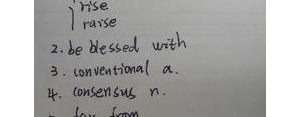 rise
raise
2. be blessed with
3. conventional a.
4. consensus n.
far from